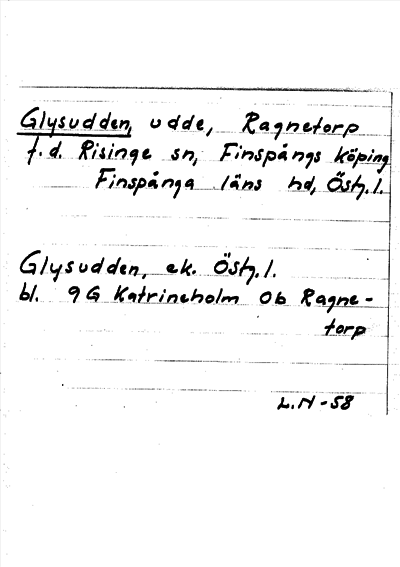 Glysudden, udde, Ragnetorp
f.d. Risinge sn, Finspångs köping
Finspånga läns hd, Östg.l.
Glysudden, ek. Östg.l.
bl. 9G Katrineholm 0b Ragne-
torp
L.N-58